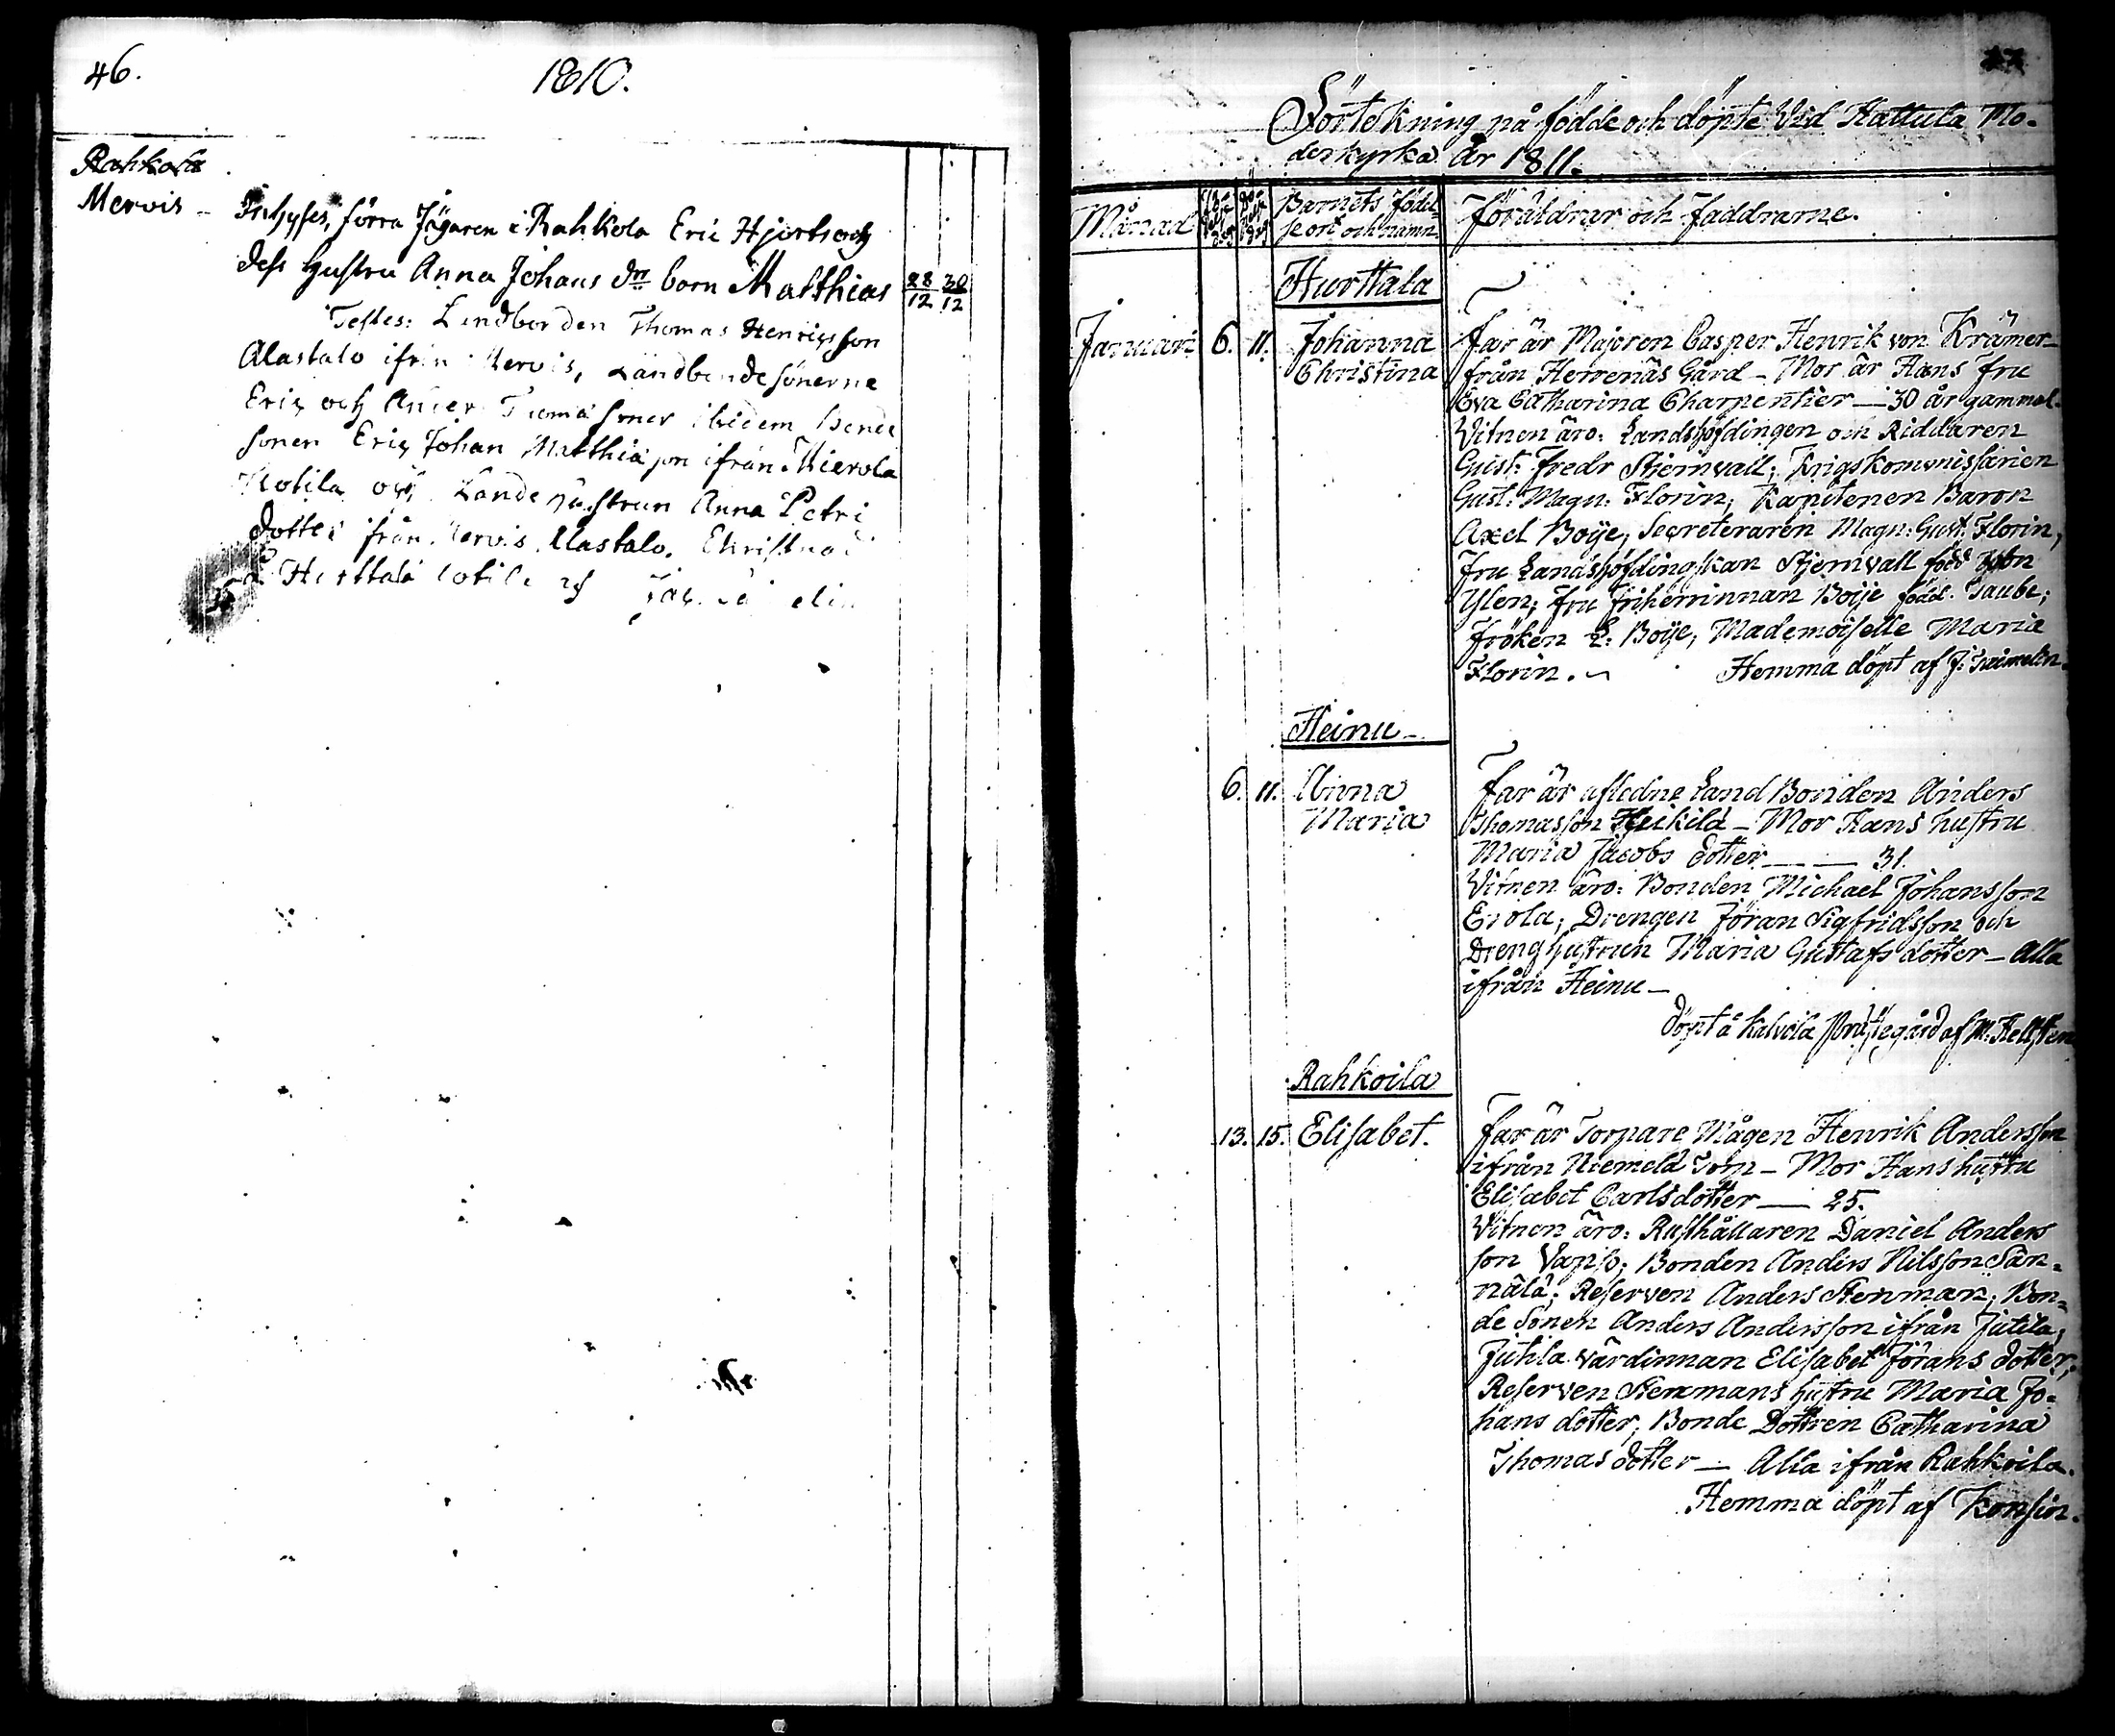 46.
1810.
Rahkola
Mervis –
Inhyses, förra Jägaren i Rahkola Eric Hjort och
dess hustru Anna Johans dr barn Matthias 28/12 30/12
Testes: Landbonden Thomas Henricsson
Alastalo ifrån Mervis, Landbondesönerne
Eric och Anders Thomæ söner ibidem, Bonde
sonen Eric Johan Matthiæ son ifrån Mierola
Kotila och Lands hustrun Anna Petri
dotter från Mervis Alastalo. Christnad
Hurttala Kotila af
Förtekning på födde och döpte Vid Hattula Mo-
derkyrka År 1811.
Månad
Barnets födel-
se ort och namn
Föräldrar och Faddrarne.
Hurttala
Januari 6. 11. Johanna
Christina
Far är Majoren Casper Henrik von Kræmer
från Herrenäs Gård – Mor är Hans fru
Eva Catharina Charpentier — 30 år gammal.
Vitnen äro: Landshöfdingen och Riddaren
Gust: Fredr Stjernvall; Krigskommissarien
Gust: Magn: Florin; Kapitenen Baron
Axel Boije, Secreteraren Magn: Gust: Florin,
Fru Landshöfdingskan Stjernvall född von
Ylen; fru friherrinnan Boije född Taube;
Fröken L: Boije, Mademoiselle Maria
Florin. Hemma döpt af J:
Heinu –
6. 11. Anna
Maria
Far är afledne Land Bonden Anders
Thomasson Heikilä – Mor Hans hustru
Maria Jacobs dotter — — 31.
Vitnen äro: Bonden Michael Johansson
Erola; Drengen Jöran Sigfridsson och
Dreng hustrun Maria Gustafs dotter – Alla
ifrån Heinu –
Döpt å Kalvola Prästegård af M: Hellsten
Rahkoila
13. 15. Elisabet.
Far är Torpare Mågen Henrik Andersson
ifrån Niemelä Torp – Mor Hans hustru
Elisabet Carlsdotter — 25.
Vitnen äro: Rusthållaren Daniel Anders
son Vapso; Bonden Anders Nilsson Sän-
nälä; Reserven Anders Stenman; Bon-
de Sonen Anders Andersson ifrån Jutila;
Jutila värdinnan Elisabet Jörans dotter;
Reserven Stenmans hustru Maria Jo-
hans dotter; Bonde Dottren Catharina
Thomas dotter – Alla ifrån Rahkoila.
Hemma döpt af Konsin.